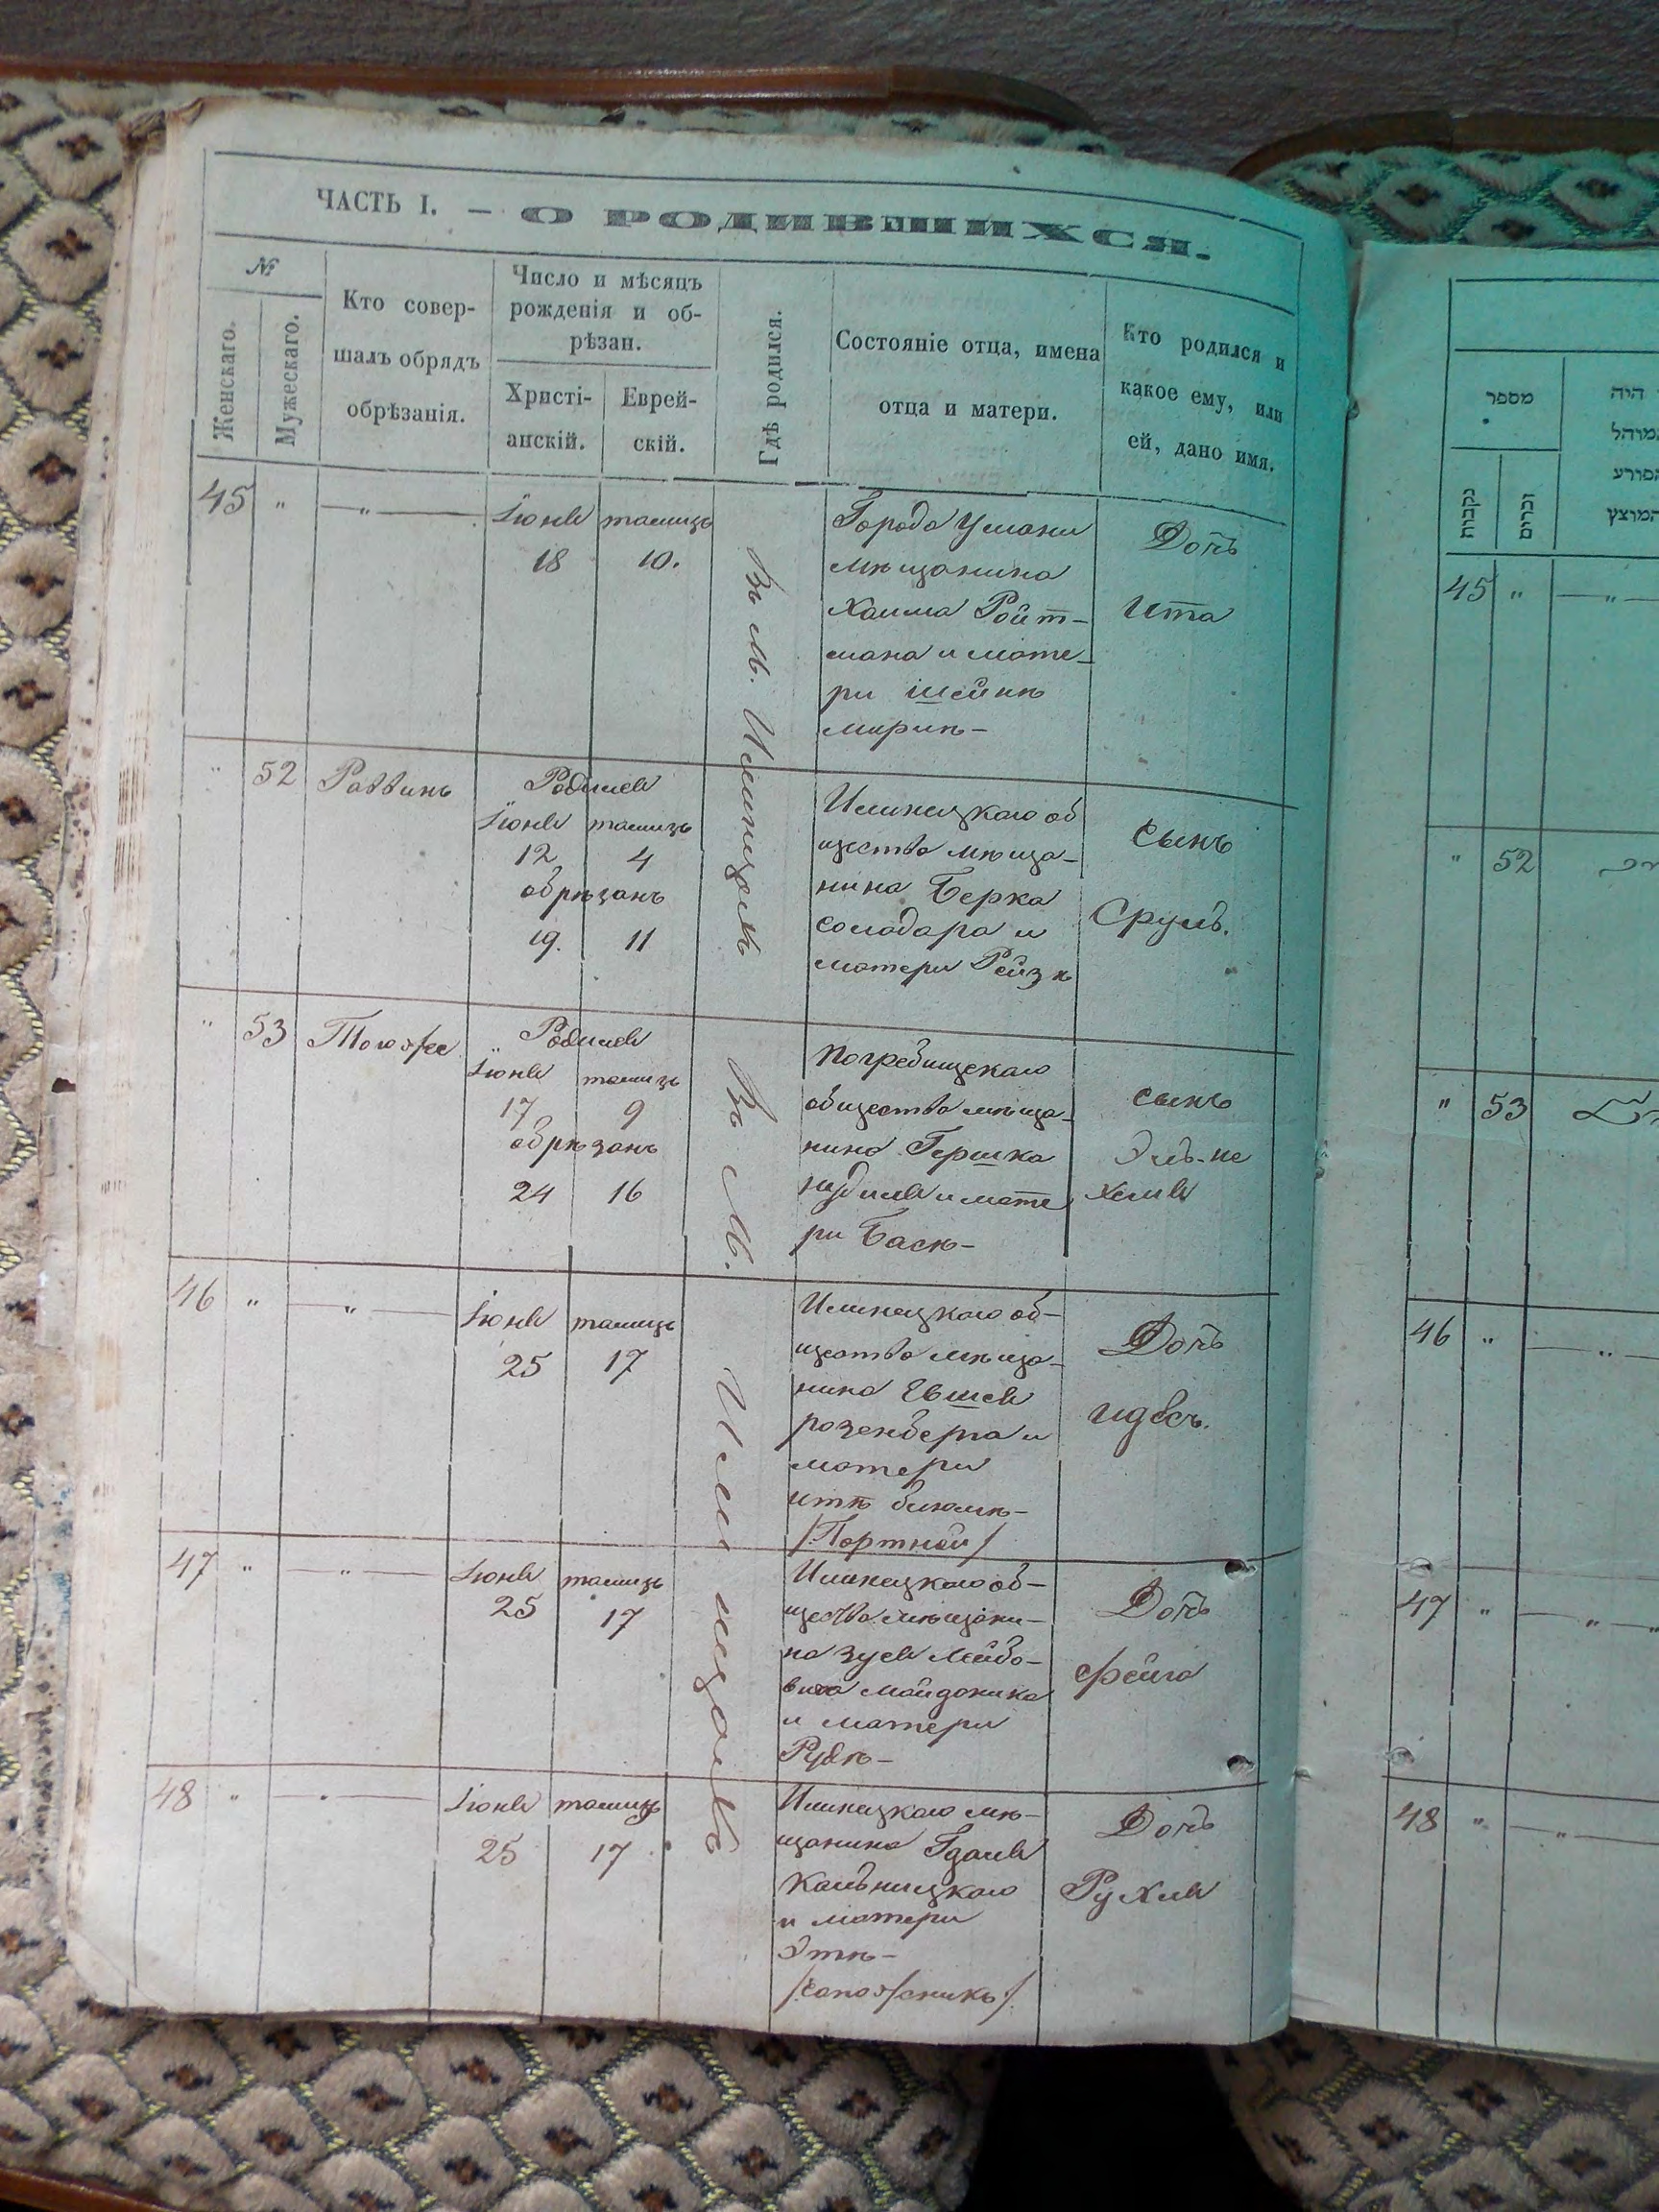 ЧАСТЬ I. — О РОДИВШИХСЯ.
№
Женскаго.
Мужескаго.
Кто совер-
шалъ обрядъ
обрѣзанія.
Число и мѣсяцъ
рожденія и об-
рѣзан.
Христі-
анскій.
Еврей-
скій.
Гдѣ родился.
Состояніе отца, имена
отца и матери.
Кто родился и
какое ему, или
ей, дано имя.
45 " —"—
Іюня
18
тамузъ
10.
Въ М. Илинцахъ
Города Умани
мѣщанина
Хаима Ройт-
мана и мате-
ри Шейнѣ
Мирилѣ-
Дочь
Ита
" 52 Раввинъ
Родился
Іюня тамузъ
12 4
обрѣзанъ
19. 11
Илинецкаго об
щества мѣща-
нина Берка
солодара и
матери Рейзѣ
Сынъ
Сруль.
" 53 Тотже
Родился
Іюня тамузъ
17 9
обрѣзанъ
24 16
Въ М. Илинцахъ
Погребищскаго
общества мѣща-
нина Гершка
и мате
ри Басѣ-
сынъ
46 " —"—
Іюня тамузъ
25 17
Илинецкаго об-
щества мѣща-
нина Евшея
розенберга и
матери
итѣ блюмѣ-
/Портной/
Дочь
идесъ.
47 " —"—
Іюня тамузъ
25 17
Илинецкаго об-
щества мѣщани-
на Зуся Лейбо-
вича майданика
и матери
Рувѣ-
Дочь
фейга
48 " —"—
Іюня тамузъ
25 17
Илинецкаго мѣ-
щанина Гдаля
Кальницкаго
и матери
Этѣ-
/сапожникъ/
Дочь
Рухля
מספר
נקבות
זכרים
היה
45 " —"—
" 52
" 53
46 " —"—
47 " —"—
48 " —"—